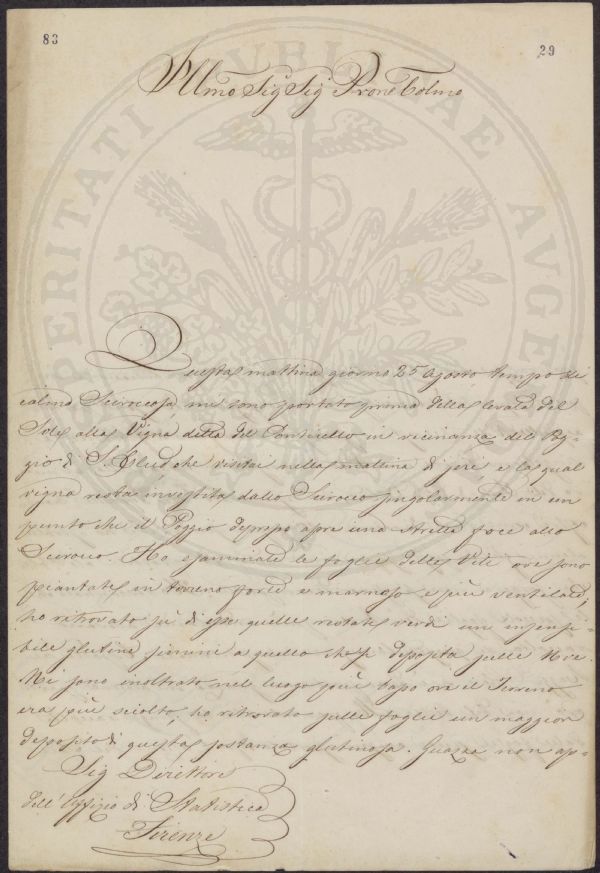 83
29
Illmo Sig.r Sig.r Prone Colmo
Questa mattina giorno 25 Agosto tempo di
calma Sciroccosa mi sono portato prima della levata del
Sole alla Vigna detta del Ponticello in vicinanza del Pog-
gio di che visitai nella mattina di jeri e la qual
vigna resta investita dallo Scirocco singolarmente in un
punto che il Poggio depresso apre una stretta foce allo
Scirocco. Ho esaminate le foglie delle Viti ove sono
piantate in terreno forte e marnoso e più ventilate,
ho ritrovato su di esse quelle restate verdi un insensi-
bile glutine simile a quello che si deposita sulle Uve.
Mi sono inoltrato nel luogo più basso ove il Terreno
era più sciolto, ho ritrovato sulle foglie un maggior
deposito di questa sostanza glutinosa. Guazza non ap-
Sig Direttore
dell' Uffizio di Statistica
Firenze
PERITATI PUBLICAE AUGE